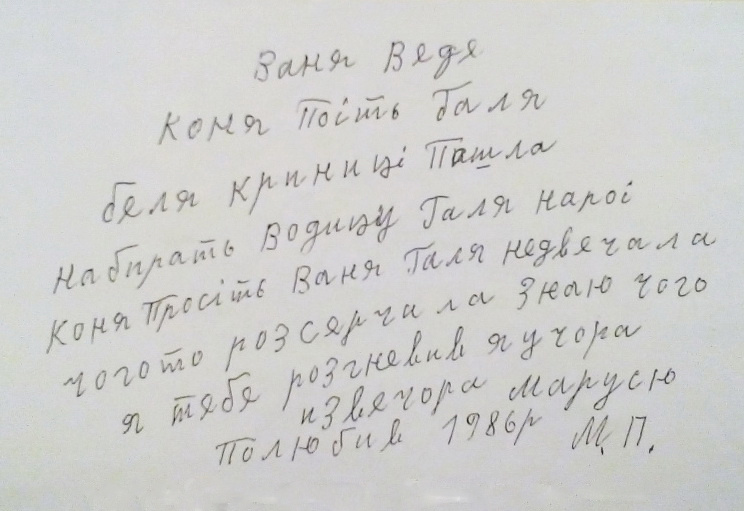 Ваня Вядя
коня Поіть Галя
беля криниці Пашла
набирать Водицу Галя напоі
коня Просіть Ваня Галя недвячала
чогото розсярчала Знаю чого
я тябя розгневив я учора
извячора Марусю
Полюбив 1986р М.П.